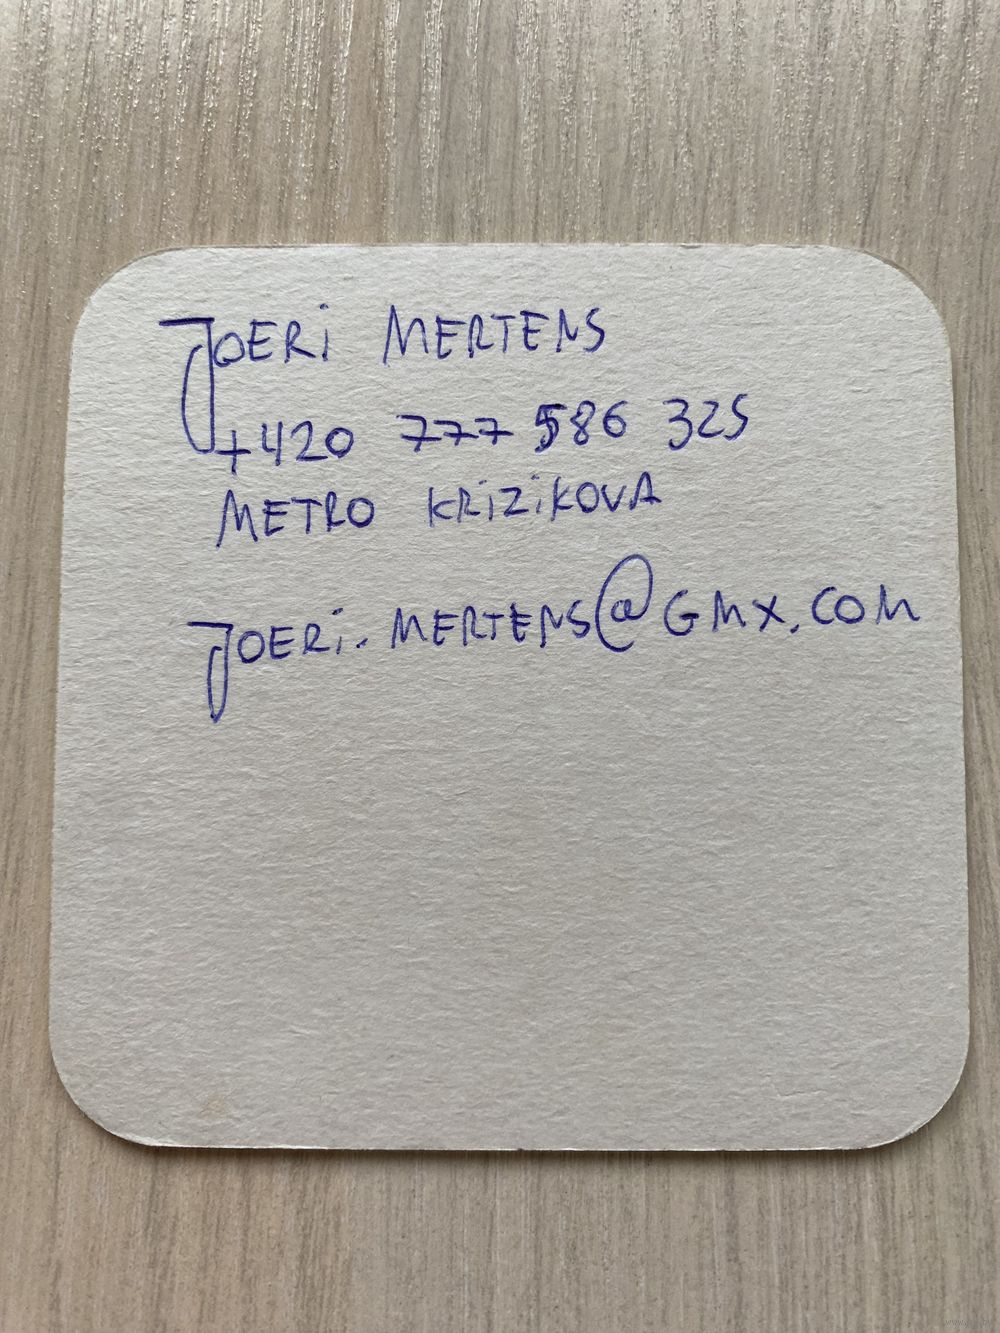 JOERi MERTENS
+420 777 586 325
METRO KRiZiKOVA
JOERi.MERTENS@GMX.COM